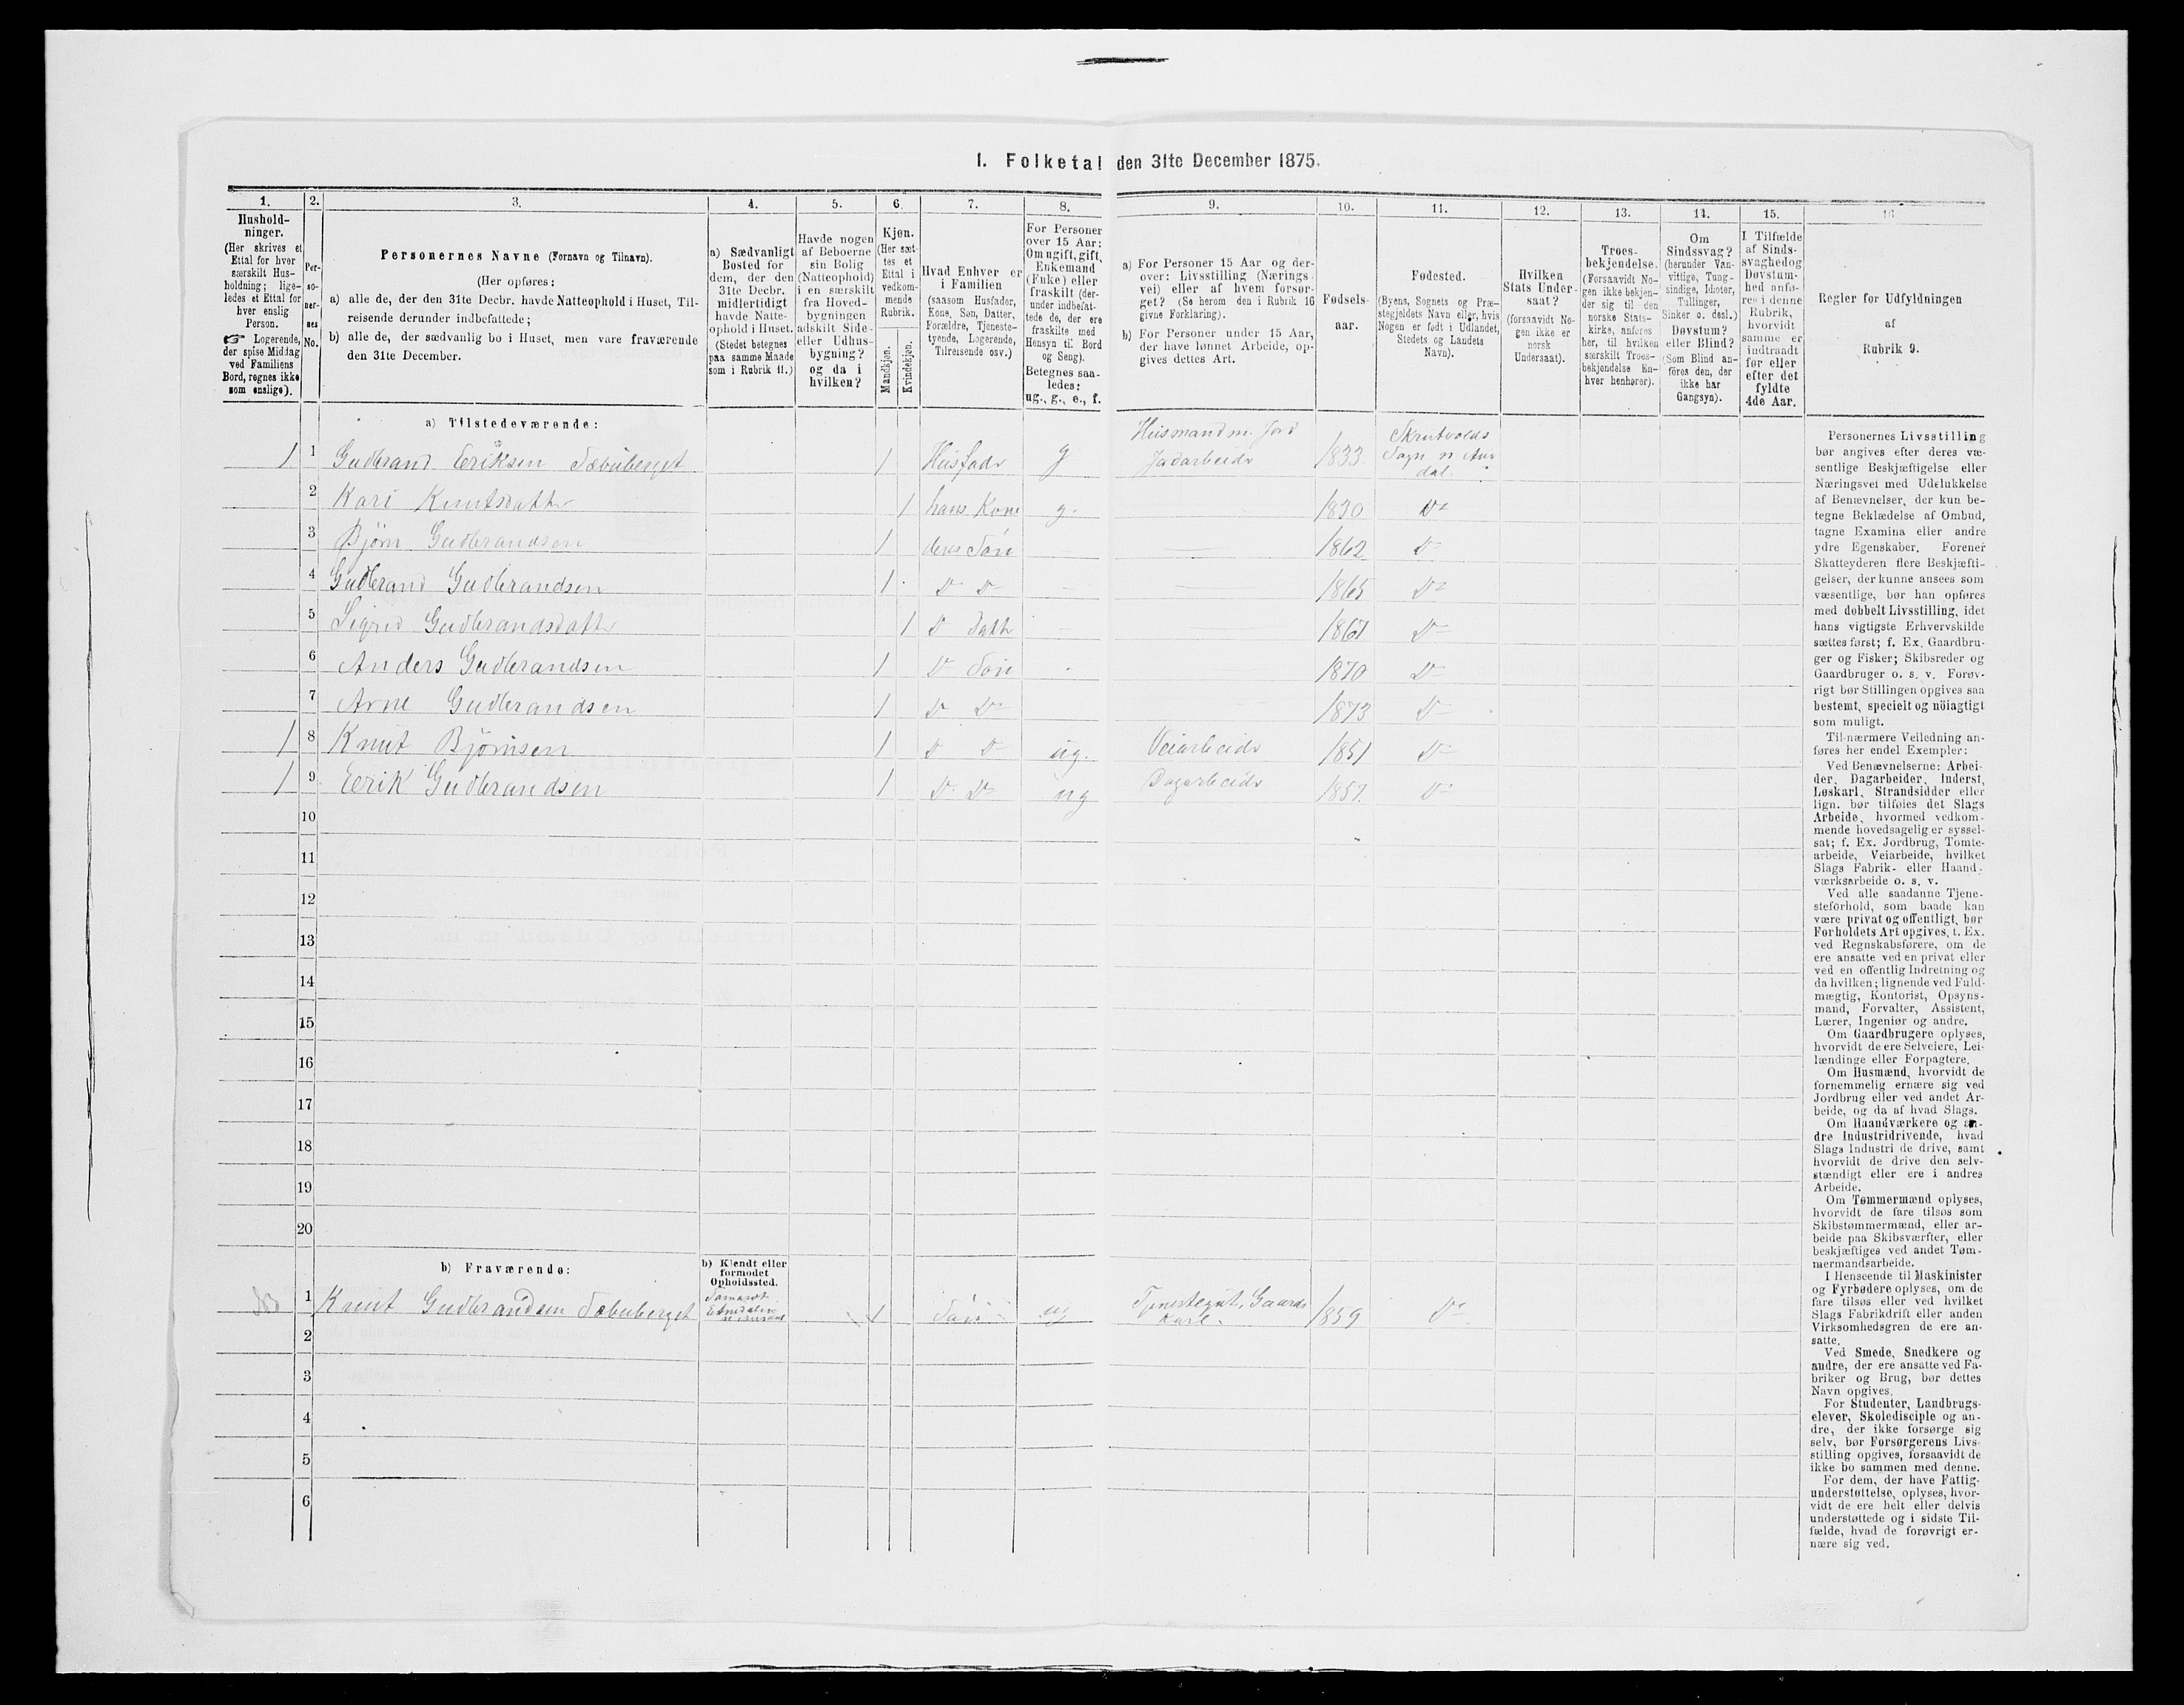 I. Folketal den 31te December 1875.
1. 2. 3. 4. 5. 6. 7. 8. 9. 10. 11. 12. 13. 14. 15. 16
Hushold-
ninger.
(Her skrives et
Ettal for hver
særskilt Hus-
holdning; lige-
ledes et Ettal for
hver enslig
Person.
☞ Logerende,
der spise Middag
ved Familiens
Bord, regnes ikke
som enslige).
Per-
so-
ner-
nes
No.
Personernes Navne (Fornavn og Tilnavn).
(Her opføres:
a) alle de, der den 31te Decbr. havde Natteophold i Huset, Til-
reisende derunder indbefattede;
b) alle de, der sædvanlig bo i Huset, men vare fraværende
den 31te December.
a) Sædvanligt
Bosted for
dem, der den
31te Decbr.
midlertidigt
havde Natte-
ophold i Huset.
(Stedet betegnes
paa samme Maade
som i Rubrik 11.)
Havde nogen
af Beboerne
sin Bolig
(Natteophold)
i en særskilt
fra Hoved-
bygningen
adskilt Side-
eller Udhus-
bygning?
og da i
hvilken?
Kjøn.
(Her sæt-
tes et
Ettal i
vedkom-
mende
Rubrik.
Mandkjøn.
Kvindekjøn.
Hvad Enhver er
i Familien
(saasom Husfader,
Kone, Søn, Datter,
Forældre, Tjeneste-
tyende, Logerende,
Tilreisende osv.)
For Personer
over 15 Aar:
Om ugift, gift,
Enkemand
(Enke) eller
fraskilt (der-
under indbefat-
tede de, der ere
fraskilte med
Hensyn til Bord
og Seng).
Betegnes saa-
ledes:
ug., g., e., f.
a) For Personer 15 Aar og der-
over: Livsstilling (Nærings-
vei) eller af hvem forsør-
get? (Se herom den i Rubrik 16
givne Forklaring).
b) For Personer under 15 Aar,
der have lønnet Arbeide, op-
gives dettes Art.
Fødsels-
aar.
Fødested.
(Byens, Sognets og Præ-
stegjeldets Navn eller, hvis
Nogen er født i Udlandet,
Stedets og Landets
Navn).
Hvilken
Stats Under-
saat?
(forsaavidt No-
gen ikke er
norsk
Undersaat).
Troes-
bekjendelse.
(Forsaavidt No-
gen ikke bekjen-
der sig til den
norske Stats-
kirke, anføres
her, til hvilken
særskilt Troes-
bekjendelse En-
hver henhører).
Om
Sindssvag?
(herunder Van-
vittige, Tung-
sindige, Idioter,
Tullinger,
Sinker o. desl.)
Døvstum?
eller Blind?
(Som Blind an-
føres den, der
ikke har
Gangsyn).
I Tilfælde
af Sinds-
svaghed og
Døvstum-
hed anfø-
res i denne
Rubrik,
hvorvidt
samme er
indtraadt
før eller
efter det
fyldte
4de Aar.
Regler for Udfyldningen
af
Rubrik 9.
a) Tilstedeværende:
Husmand m. Jord Skrutvolds
1 1 Gudbrand Eriksen Sæbuberget 1 Husfadr g Jordarbeide 1833 Sogn n. Aur
dal.
2 Kari Knutsdattr 1 hans Kone g. 1830 Do
3 Bjørn Gudbrandsen 1 deres Søn 1862 Do
4 Gudbrand Gudbrandsen 1 Do Do 1865 Do
5 Sigrid Gudbrandsdattr 1 Do Dattr 1867 Do
6 Anders Gudbrandsen 1 Do Søn 1870 Do
7 Arne Gudbrandsen 1 Do Do 1873 Do
1 8 Knut Bjørnsen 1 Do Do ug. Veiarbeidr 1851 Do
1 9 Eerik Gudbrandsen 1 Do Do ug Dagarbeidr 1857. Do
10
11
12
13
14
15
16
17
18
19
20
b) Fraværende:
b) Kjendt eller
formodet
Opholdssted.
1 Knut Gudbrandsen Sæbuberget Etnedalen n. Aurdal 1 Søn ug Tjenestegut, Gaards 1859 Do
Karl.
2
3
4
5
6
Personernes Livsstilling
bør angives efter deres væ-
sentlige Beskjæftigelse eller
Næringsvei med Udelukkelse
af Benævnelser, der kun be-
tegne Beklædelse af Ombud,
tagne Examina eller andre
ydre Egenskaber. Forener
Skatteyderen flere Beskjæfti-
gelser, der kunne ansees som
væsentlige, bør han opføres
med dobbelt Livsstilling, idet
hans vigtigste Erhvervskilde
sættes først; f. Ex. Gaardbru-
ger og Fisker; Skibsreder og
Gaardbruger o. s. v. Forøv-
rigt bør Stillingen opgives saa
bestemt, specielt og nöiagtigt
som muligt.
Til nærmere Veiledning an-
føres her endel Exempler:
Ved Benævnelserne: Arbei-
der, Dagarbeider, Inderst,
Løskarl, Strandsidder eller
lign. bør tilføies det Slags
Arbeide, hvormed vedkom-
mende hovedsagelig er syssel-
sat; f. Ex. Jordbrug, Tomte-
arbeide, Veiarbeide, hvilket
Slags Fabrik- eller Haand-
værksarbeide o. s. v.
Ved alle saadanne Tjene-
steforhold, som baade kan
være privat og offentligt, bør
Forholdets Art opgives, t. Ex.
ved Regnskabsførere, om de
ere ansatte ved en privat eller
ved en offentlig Indretning og
da hvilken; lignende ved Fuld-
mægtig, Kontorist, Opsyns-
mand, Forvalter, Assistent,
Lærer, Ingeniør og andre.
Om Gaardbrugere oplyses,
hvorvidt de ere Selveiere, Lei-
lændinge eller Forpagtere.
Om Husmænd, hvorvidt de
fornemmelig ernære sig ved
Jordbrug eller ved andet Ar-
beide, og da af hvad Slags.
Om Haandværkere og an-
dre Industridrivende, hvad
Slags Industri de drive, samt
hvorvidt de drive den selv-
stændigt eller ere i andres
Arbeide.
Om Tømmermænd oplyses,
hvorvidt de fare tilsøs som
Skibstømmermænd, eller ar-
beide paa Skibsværfter, eller
beskjæftiges ved andet Tøm-
mermandsarbeide.
I Henseende til Maskinister
og Fyrbødere oplyses, om de
fare tilsøs eller ved hvilket
Slags Fabrikdrift eller anden
Virksomhedsgren de ere an-
satte.
Ved Smede, Snedkere og
andre, der ere ansatte ved Fa-
briker og Brug, bør dettes
Navn opgives.
For Studenter, Landbrugs-
elever, Skoledisciple og an-
dre, der ikke forsørge sig
selv, bør Forsørgerens Livs-
stilling opgives, forsaavidt de
ikke bo sammen med denne.
For dem, der have Fattig-
understøttelse, oplyses, hvor-
vidt de ere helt eller delvis
understøttede og i sidste Til-
fælde, hvad de forøvrigt er-
nære sig ved.